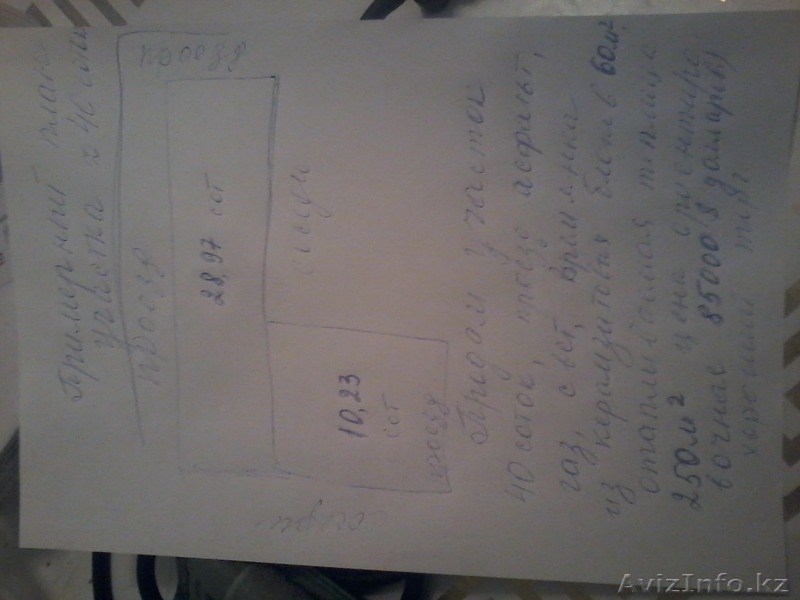 Примерный план
участка ≈ 40 соток
проезд
проезд
28,97 сот
соседи
10,23
сот
проезд
соседи
Продам участок
40 соток, проезд асфальт,
газ, свет, времянка
из керамзитовых блоков 60м²,
отапливаемая теплица
250м² цена ориентиро-
вочная 85000 $ доллары)
хороший торг
AvizInfo.kz